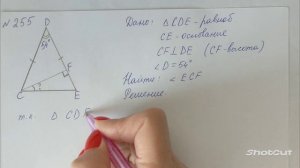 N 255
D
54°
F
C
?
E
Дано: △CDE – равноб
CE – основание
CF⊥DE (CF – высота)
∠D = 54°
Найти: ∠ECF
Решение
т.к. △ CDE
ShotCut